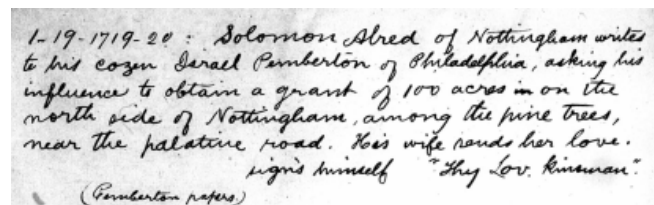 1-19-1719-20: Solomon Alred of Nottingham writes
to his cozen Israel Pemberton of Philadelphia, asking his
influence to obtain a grant of 100 acres in on the
north side of Nottingham, among the pine trees,
near the palatine road. His wife sends her love.
signs himself "Thy Lov. Kinsman".
(Pemberton papers)